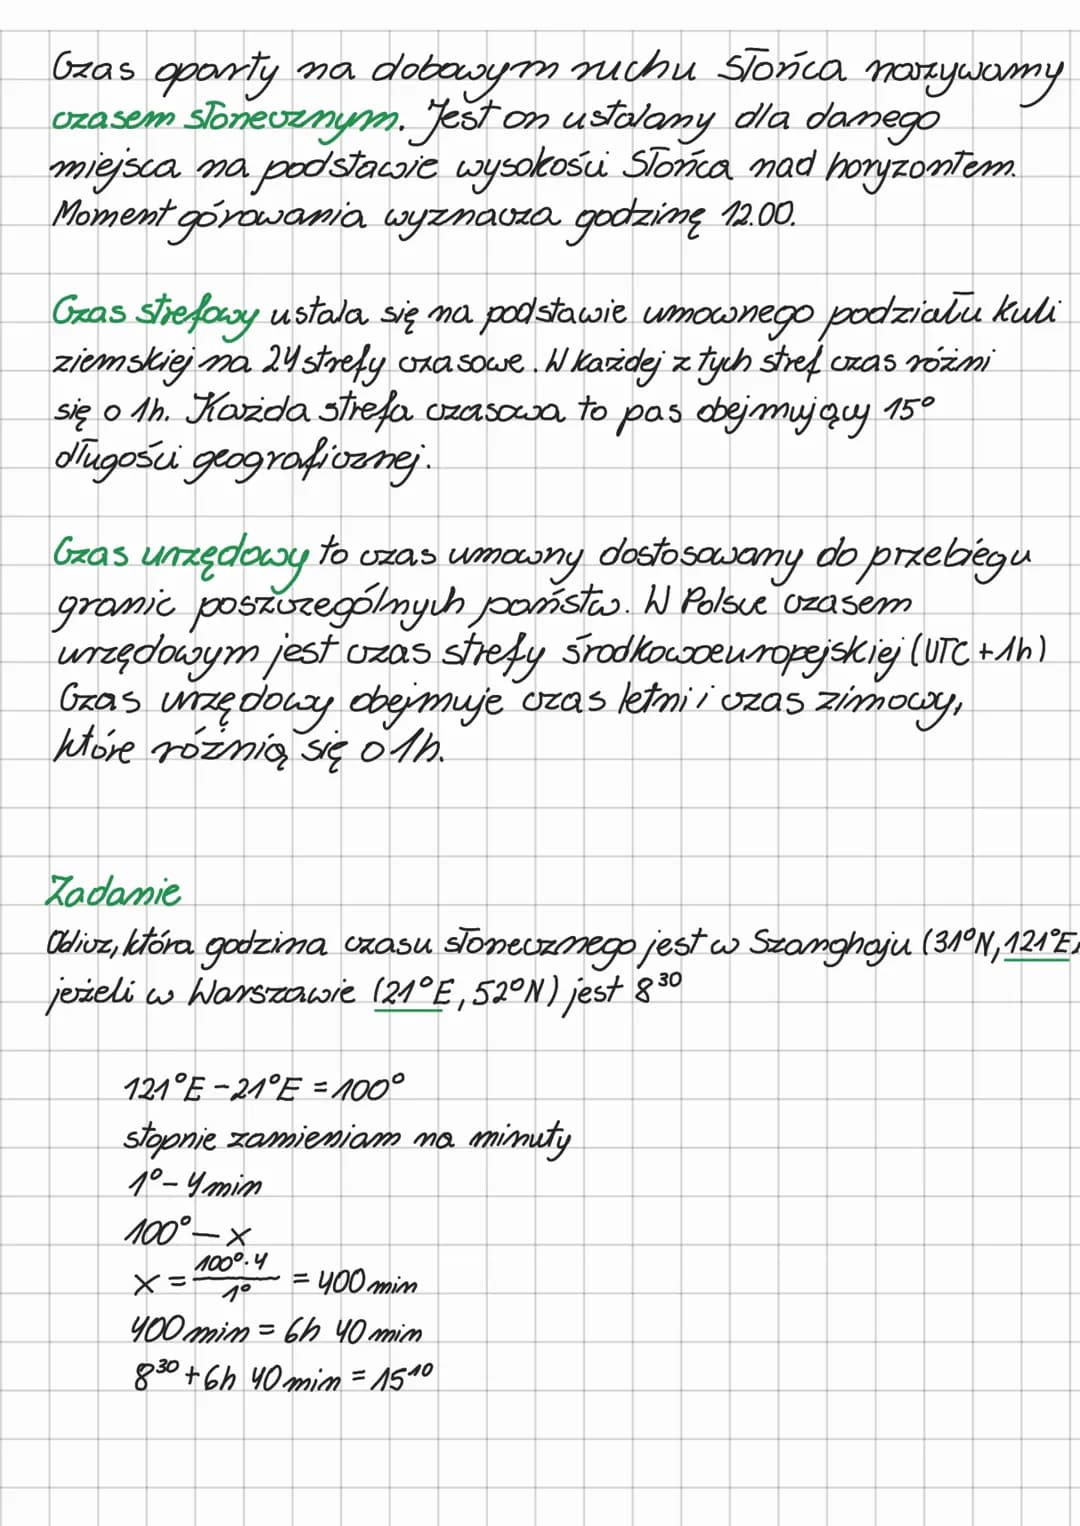 Czas oparty na dobowym ruchu Słońca nazywamy
czasem słonecznym. Jest on ustalany dla danego
miejsca na podstawie wysokości Słońca nad horyzontem.
Moment górowania wyznacza godzinę 12.00.
Czas strefowy ustala się na podstawie umownego podziału kuli
ziemskiej na 24 strefy czasowe. W każdej z tych stref czas różni
się o 1h. Każda strefa czasowa to pas obejmujący 15°
długości geograficznej.
Czas urzędowy to czas umowny dostosowany do przebiegu
granic poszczególnych państw. W Polsce czasem
urzędowym jest czas strefy środkowoeuropejskiej (UTC +1h)
Czas urzędowy obejmuje czas letni i czas zimowy,
które różnią się o 1h.
Zadanie
Oblicz, która godzina czasu słonecznego jest w Szanghaju (31°N, 121°E,
jeżeli w Warszawie (21°E, 52°N) jest 8³⁰
121°E - 21°E = 100°
stopnie zamieniam na minuty
1° - 4 min
100° — x
x = 100°·4 / 1° = 400 min
400 min = 6h 40 min
8³⁰ + 6h 40 min = 15¹⁰